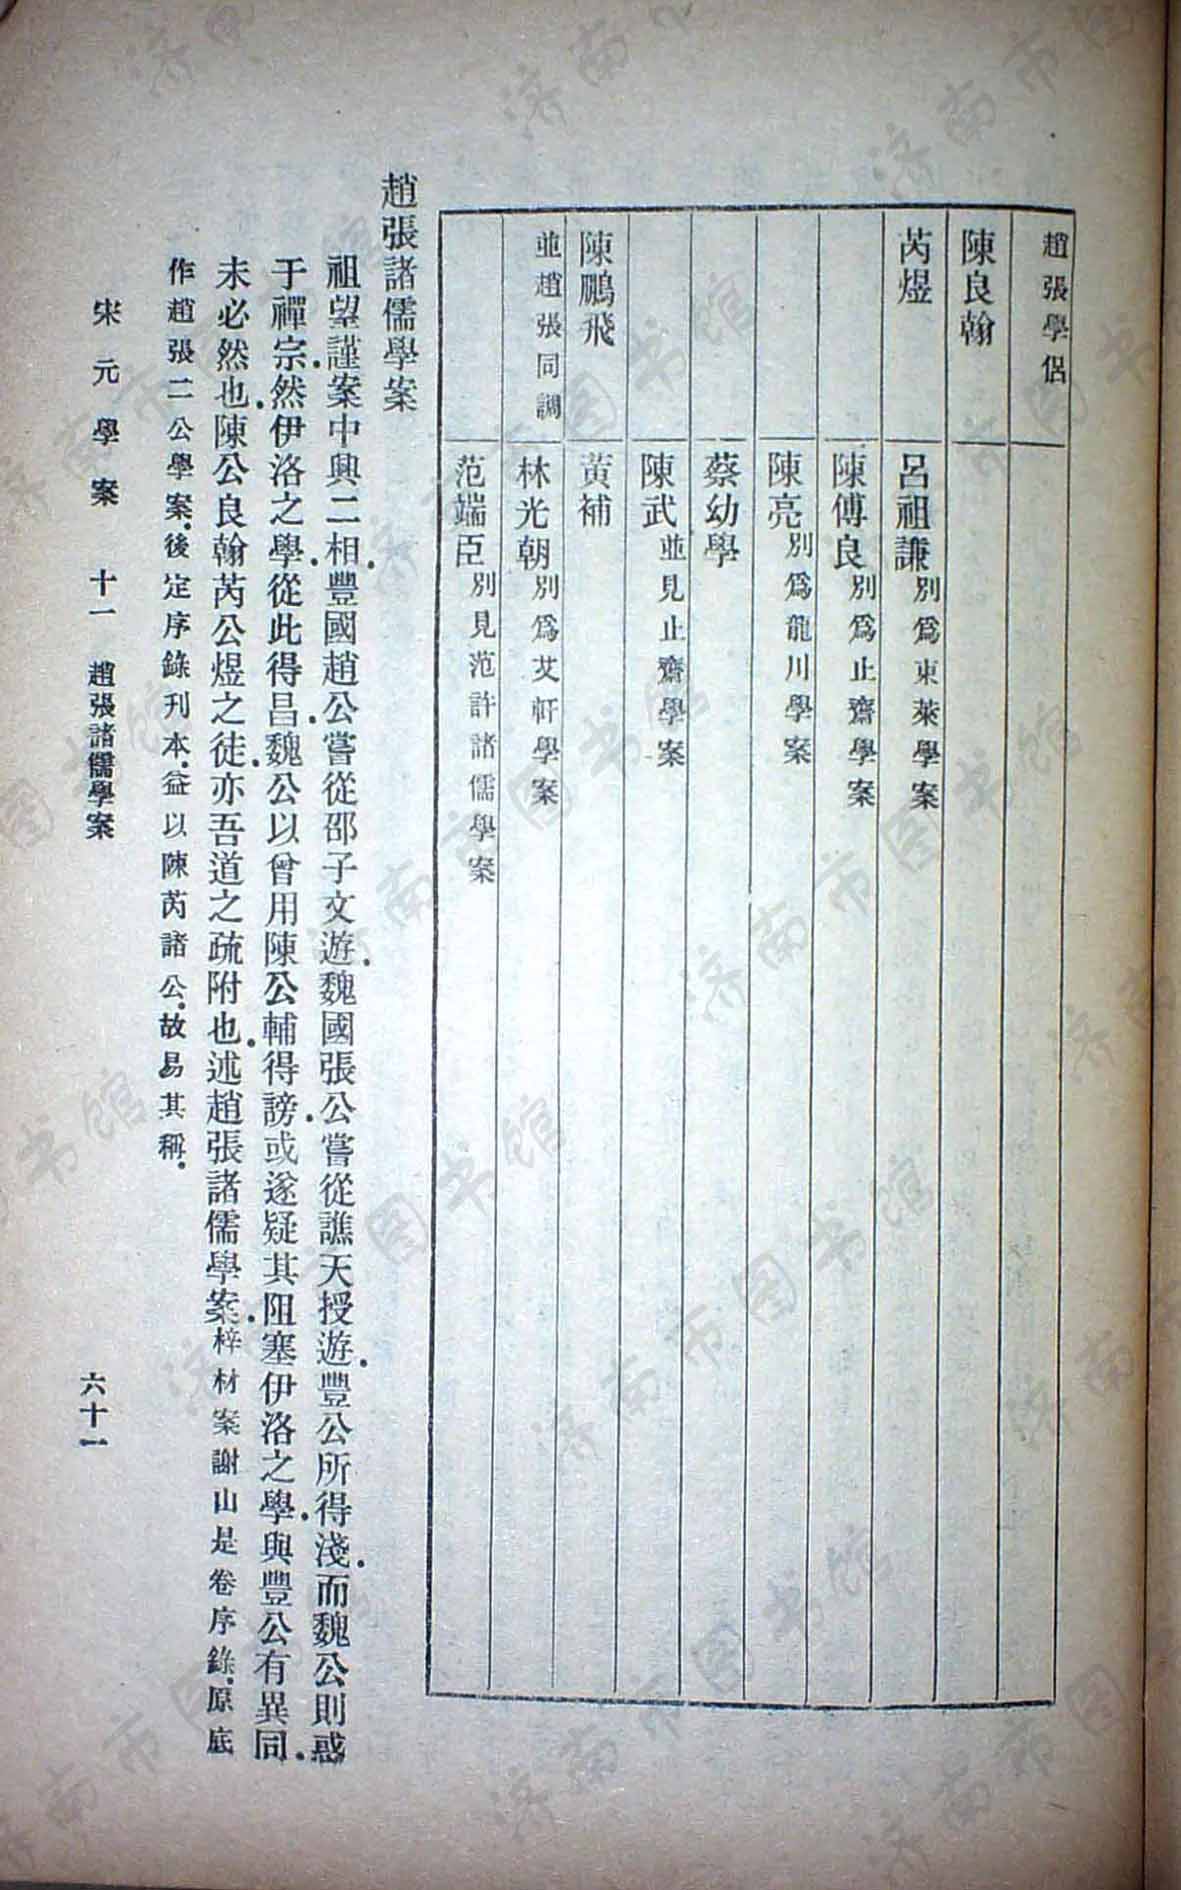 趙張學侶
陳良翰
芮煜 呂祖謙別爲東萊學案
陳傅良別爲止齋學案
陳亮別爲龍川學案
蔡幼學
陳武並見止齋學案
陳鵬飛 黃補
並趙張同調 林光朝別爲艾軒學案
范端臣別見范許諸儒學案
趙張諸儒學案
祖望謹案中興二相豐國趙公嘗從邵子文遊魏國張公嘗從譙天授遊豐公所得淺而魏公則惑
于禪宗然伊洛之學從此得昌魏公以曾用陳公輔得謗或遂疑其阻塞伊洛之學與豐公有異同
未必然也陳公良翰芮公煜之徒亦吾道之疏附也述趙張諸儒學案梓材案謝山是卷序錄原底
作趙張二公學案後定序錄刊本益以陳芮諸公故易其稱
宋元學案 十一 趙張諸儒學案 六十一
济南市图书馆